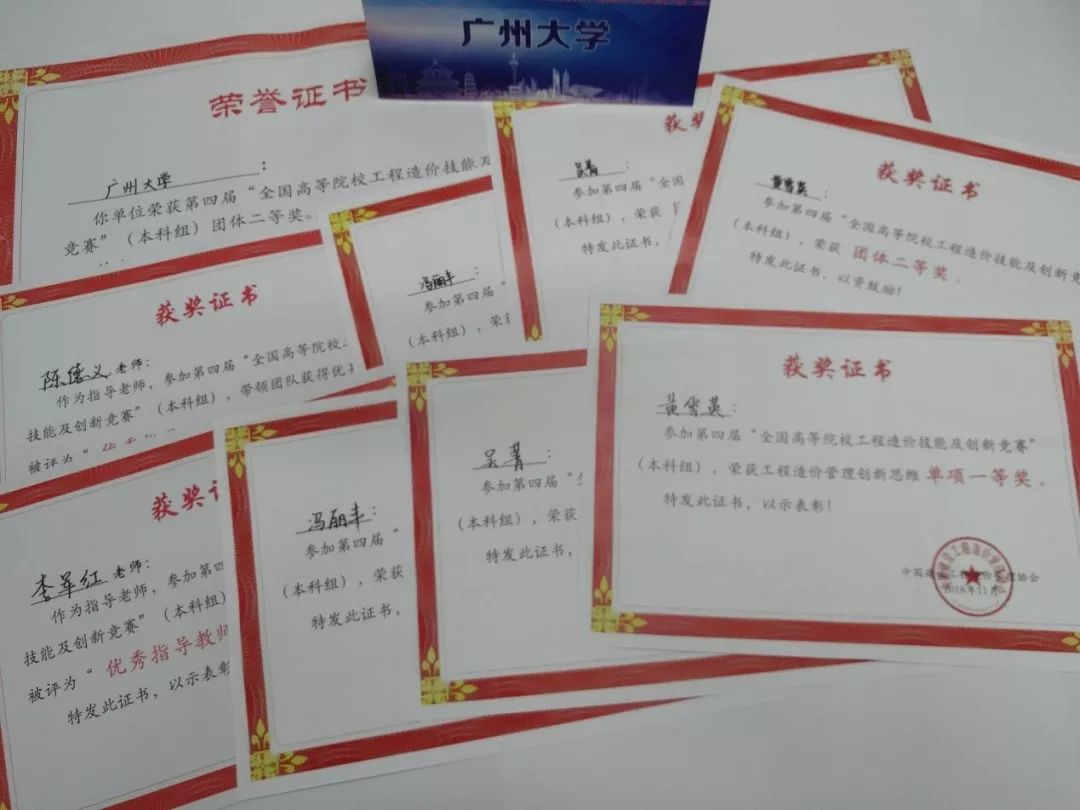 广州大学
荣誉证书
广州大学：
你单位荣获第四届“全国高等院校工程造价技能及
竞赛”（本科组）团体二等奖。
获奖
吴菁：
参加第四届“全国
（本科组），荣获
特发此证书，
获奖证书
黄雪英：
参加第四届“全国高等院校工程造价技能及创新竞
（本科组），荣获 团体二等奖，
特发此证书，以资鼓励！
冯丽丰：
参加第四届“
（本科组），荣
获奖证书
陈德义老师：
作为指导老师，参加第四届“全国高等院校
技能及创新竞赛”（本科组），带领团队获得优
被评为“优秀
获奖证书
黄雪英：
参加第四届“全国高等院校工程造价技能及创新竞赛”
（本科组），荣获工程造价管理创新思维 单项一等奖。
特发此证书，以示表彰！
2018年11月
吴菁：
参加第四届“
（本科组），荣获
特发此证书，
冯丽丰：
参加第四届“
（本科组），荣获
特发此证书，
获奖
李军红老师：
作为指导老师，参加第四
技能及创新竞赛”（本科组）
被评为“优秀指导教师
特发此证书，以示表彰